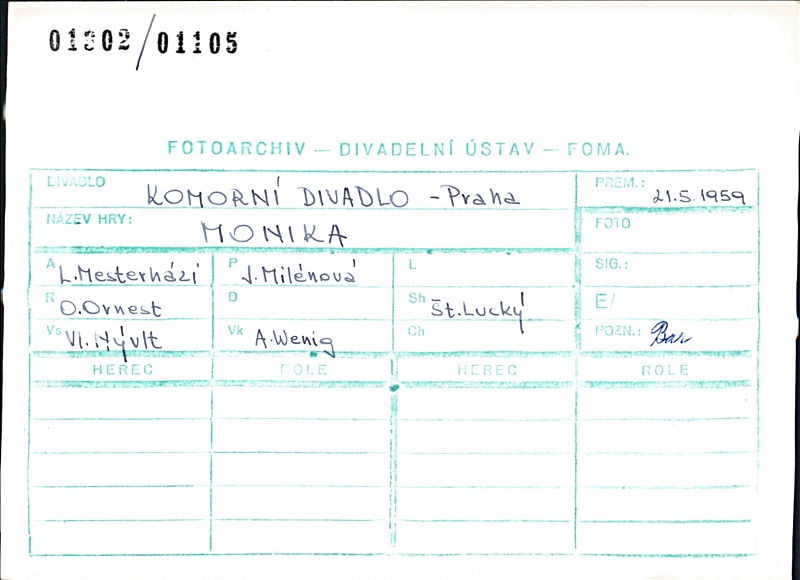 01302/01105
FOTOARCHIV — DIVADELNÍ ÚSTAV — FOMA.
DIVADLO KOMORNÍ DIVADLO - Praha PREM.: 21.5.1959
NÁZEV HRY: MONIKA FOTO
A L.Mesterházi P J.Milénová L SIG.:
R O.Ornest D Sh Št.Lucký E/
Vs Vl.Nývlt Vk A.Wenig Ch POZN.: Bar
HEREC ROLE HEREC ROLE